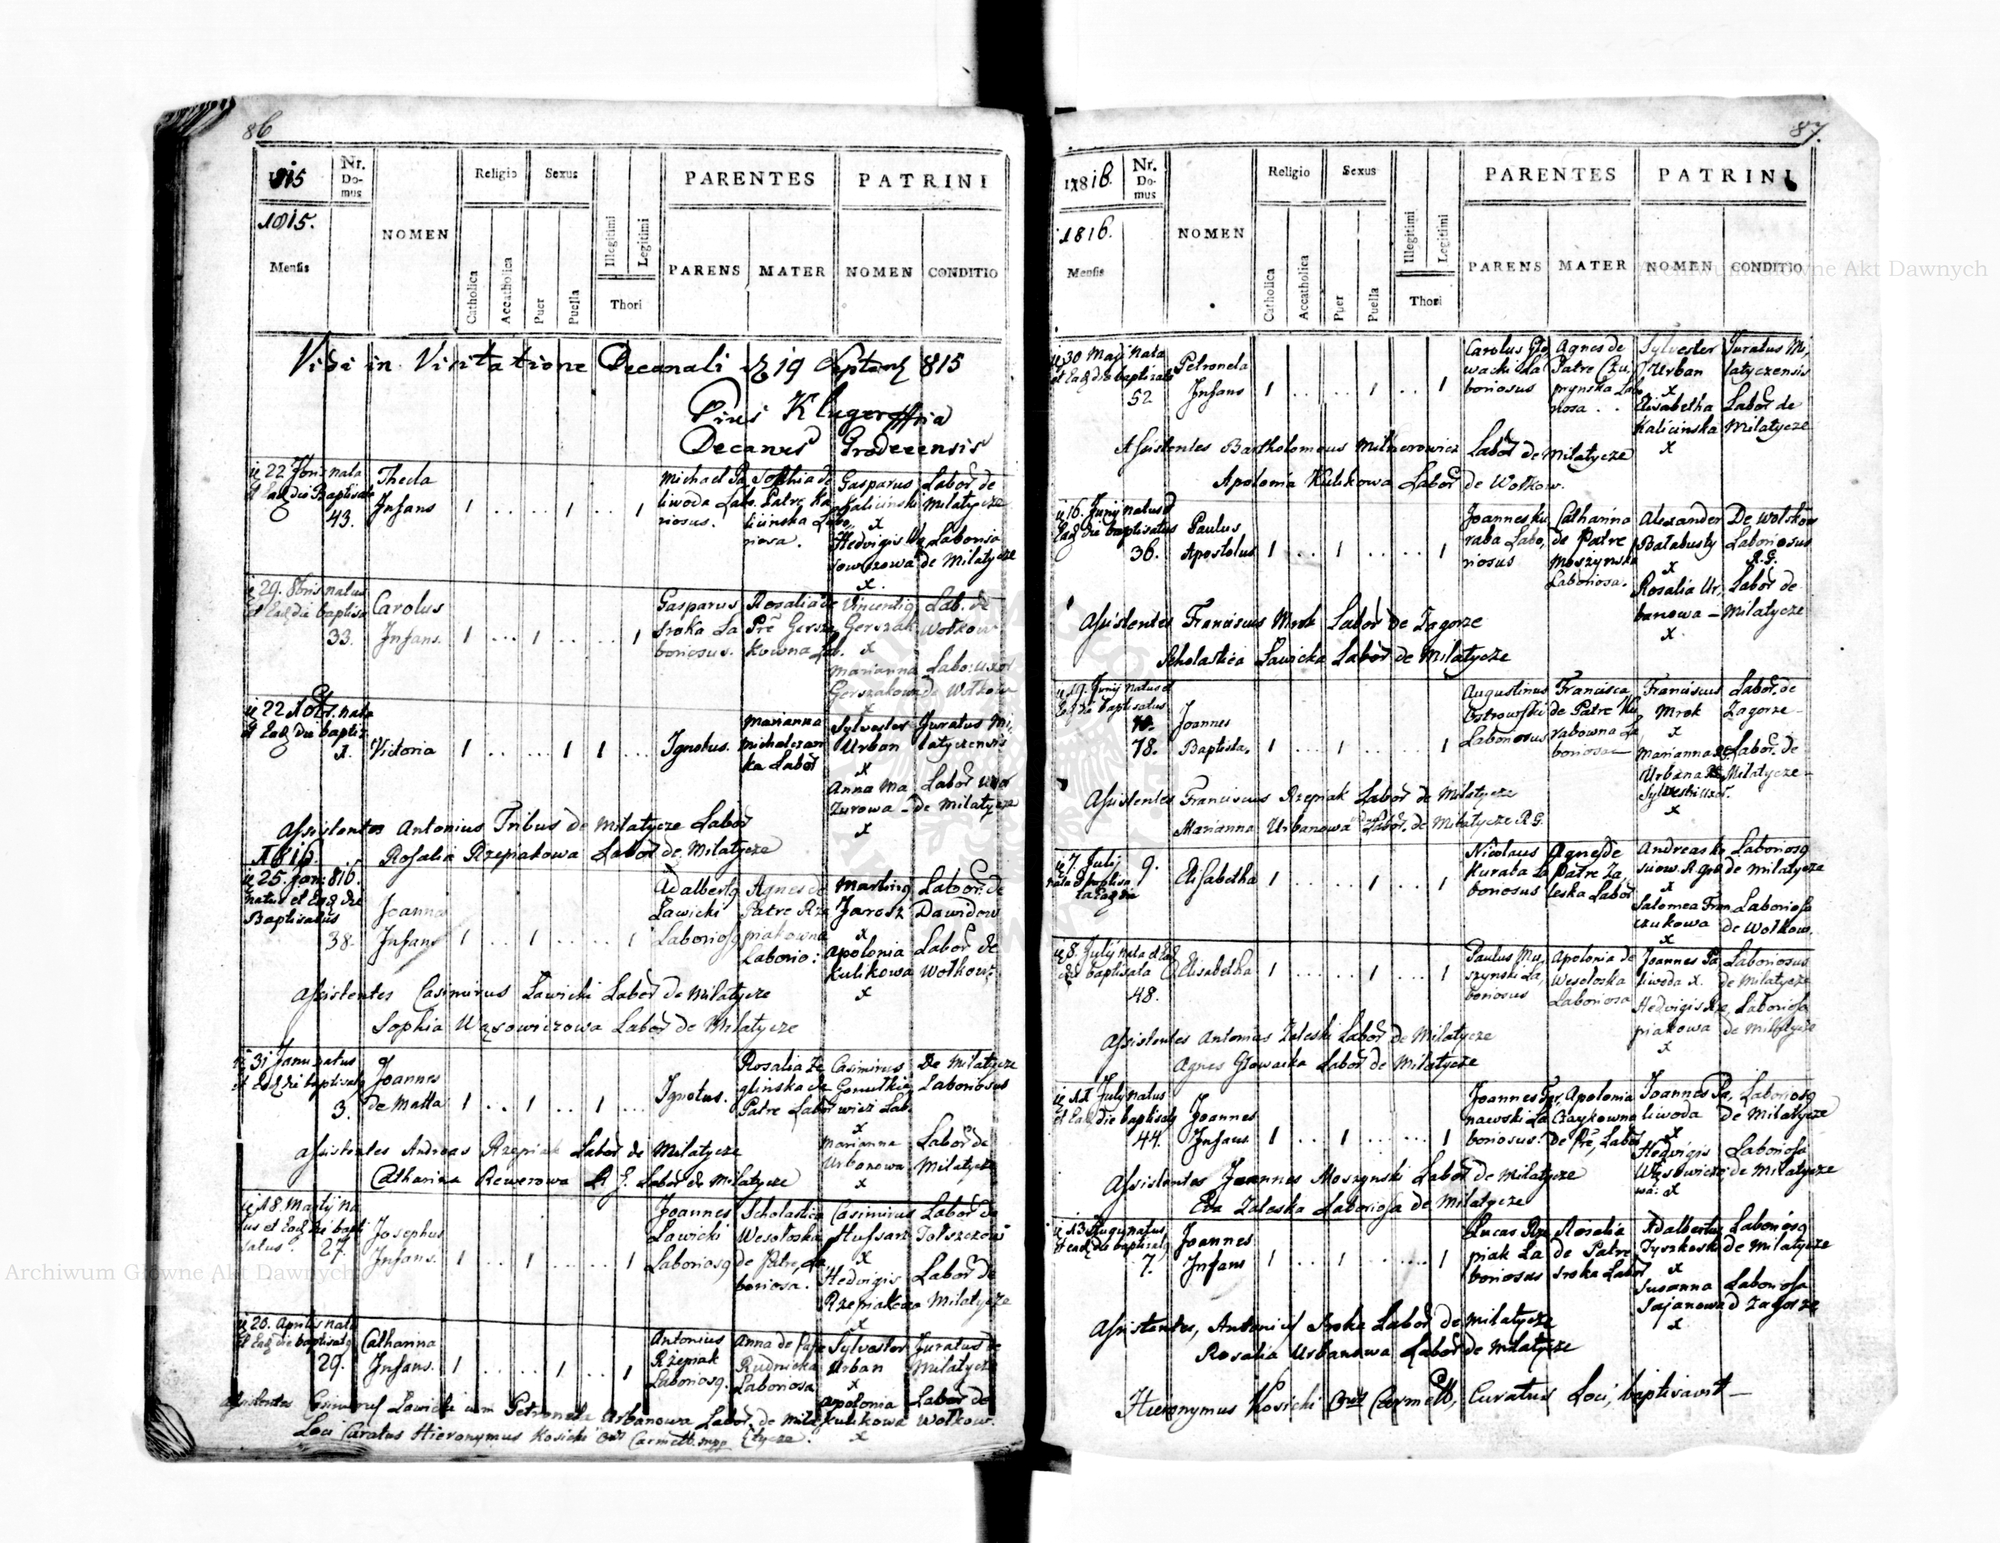 86
1815
Nr. Domus
NOMEN
Religio
Sexus
PARENTES
PATRINI
1815.
Mensis
Catholica
Accatholica
Puer
Puella
Illegitimi
Legitimi
Thori
PARENS
MATER
NOMEN
CONDITIO
Vidi in Visitatione Decanali 19 815
Pius Kluger
Decanus Grodecensis
22 nata
et Eadē die Baptisata
43.
Thecla
Infans
1 1 1
Michael Pa
liwoda Labo
riosus.
Sophia de
Patre Ka
licinska Labo
riosa.
Gasparus
Kalicinski
x
Hedvigis Wą
sowiczowa
x
Labor de
Milatycze
Laboriosa
de Milatycze
29. 8bris natus
et Eadē die baptisa
33.
Carolus
Infans.
1 1 1
Gasparus
Sroka La
boriosus.
Rosalia de
Prē Gersza
kowna Lab.
Vincentiq
Gerszak
x
Marianna
Gerszakowa
x
Lab. de
Wołkow
Labo: uxor
de Wołkow
22 nata
et Eadē die baptiz
x.
Victoria
1 1 1
Ignotus.
Marianna
Michalczan
ka Labor
Sylvester
Urban
x
Anna Ma
zurowa
x
Juratus Mi,
latyczensis
Labor uxor
de Milatycze
Assistentes Antonius Tribus de Milatycze Labor
Rosalia Rzepiakowa Labor de Milatycze
1816.
25. Jan: 816.
natus et Eadē die
Baptisatus
38.
Joanna
Infans
1 1 1
Adalbertq
Lawicki
Laboriosq
Agnes de
Patre Rze
piakowna
Laborio:
Martinq
Jarosz
x
Apolonia
Kulikowa
x
Labor. de
Dawidow
Labor de
Wołkow:
Assistentes Casimirus Lawicki Labor de Milatycze
Sophia Wąsowiczowa Labor de Milatycze
31 Janu natus
et Eadē die baptisatq
3.
Joannes
de Matta
1 1 1
Ignotus.
Rosalia Ze
glinska de
Patre Labor
Casimirus
Gomułkie
wicz Lab.
x
Marianna
Urbanowa
x
De Milatycze
Laboriosus
Labor de
Milatycze
Assistentes Andreas Rzepiak Labor de Milatycze
Catharina Rewerowa R. G. Labor de Milatycze
18. Martij na
tus et Eadē die bapti
satus. 27.
Josephus
Infans.
1 1 1
Joannes
Lawicki
Laboriosq
Scholastica
Wesołoska
de Patre La
boriosa.
Casimirus
Hufsar
x
Hedvigis
Rzepiakowa
x
Labor de
Tołszczow
Labor de
Milatycze
20. Aprilis nata
et Eadē die baptisatq
29.
Catharina
Infans.
1 1 1
Antonius
Rzepiak
Laboriosq.
Anna de Patre
Rudnicka
Laboriosa
Sylvester
Urban
x
Apolonia
Kulikowa
x
Juratus de
Milatycze
Labor de
Wołkow.
Assistentes Casimirus Lawicki cum Petronela Urbanowa Labor. de Mila
tycze.
Loci Curatus Hieronymus Kosicki Ord Carmelt. mpp
87.
1816.
Nr. Domus
NOMEN
Religio
Sexus
PARENTES
PATRINI
1816.
Mensis
Catholica
Accatholica
Puer
Puella
Illegitimi
Legitimi
Thori
PARENS
MATER
NOMEN
CONDITIO
30 Maij nata
et Eadē die baptizata
52
Petronela
Infans
1 1 1
Carolus Gło,
wacki La
boriosus
Agnes de
Patre Czu,
prynska Labo
riosa
Sylvester
Urban
x
Elisabetha
Kalicinska
x
Juratus Mi,
latyczensis
Labor de
Milatycze
Assistentes Bartholomeus Milnerowicz Labor de Milatycze
Apolonia Kulikowa Labor de Wołkow.
16. Junij natus et
Eadē die baptisatus
36.
Paulus
Apostolus
1 1 1
Joannes Ku
raba Labo,
riosus
Catharina
de Patre
Moszynska
Laboriosa.
Alexander
Bałabusty
x
Rosalia Ur,
banowa
x
De Wołkow
Laboriosus
R. G.
Labor de
Milatycze
Assistentes Franciscus Mrok Labor de Zagorze
Scholastica Lawicka Labor de Milatycze
19. Junij natus et
Eadē die baptisatus
78.
Joannes
Baptista.
1 1 1
Augustinus
Ostrowski
Laboriosus
Francisca
de Patre Ku
rabowna La
boriosa
Franciscus
Mrok
x
Marianna
Urbana
Sylvestri uxor.
x
Labor. de
Zagorze
Labor. de
Milatycze
Assistentes Franciscus Rzepiak Labor de Milatycze
Marianna Urbanowa Labor. de Milatycze R. G.
7. Julij 9.
nata et baptisa
ta Eadē
Elisabetha
1 1 1
Nicolaus
Kuraba La
boriosus
Agnes de
Patre Za
leska Labor
Andreas
x
Salomea Fran
czukowa
x
Laboriosq
de Milatycze
Laboriosa
de Wołkow.
8. July nata et Ea
dē baptisata
48.
Elisabetha
1 1 1
Paulus Mo,
szynski La,
boriosus
Apolonia de
Wesołoska
Laboriosa
Joannes Pa
liwoda x.
Hedvigis Rze,
piakowa
x
Laboriosus
de Milatycze
Laboriosa
de Milatycze
Assistentes Antonius Zaleski Labor de Milatycze
Agnes Głowacka Labor de Milatycze
July natus
et Eadē die baptisatq
44.
Joannes
Infans
1 1 1
Joannes Tar,
nawski La
boriosus.
Apolonia
Czaykowna
de Prē, Labor
Joannes Pa,
liwoda
x
Hedvigis
Wąsowiczo
wa: x
Laboriosq
de Milatycze
Laboriosa
de Milatycze
Assistentes Joannes Moszynski Labor de Milatycze
Eva Zaleska Laboriosa de Milatycze
13 Augu natus,
et eadē die baptizatq
7.
Joannes
Infans
1 1 1
Lucas Rze
piak La
boriosus
Rosalia
de Patre
Sroka Labor
Adalbertus
Tyszkoski
x
Susanna
Sajanowa
x
Laboriosq
de Milatycze
Laboriosa
d Zagorze
Assistentes, Antonius Sroka Labor de Milatycze
Rosalia Urbanowa Labor de Milatycze
Hieronymus Kosicki Ord Carmelt, Curatus Loci, baptisavit
Archiwum Główne Akt Dawnych
Archiwum Główne Akt Dawnych